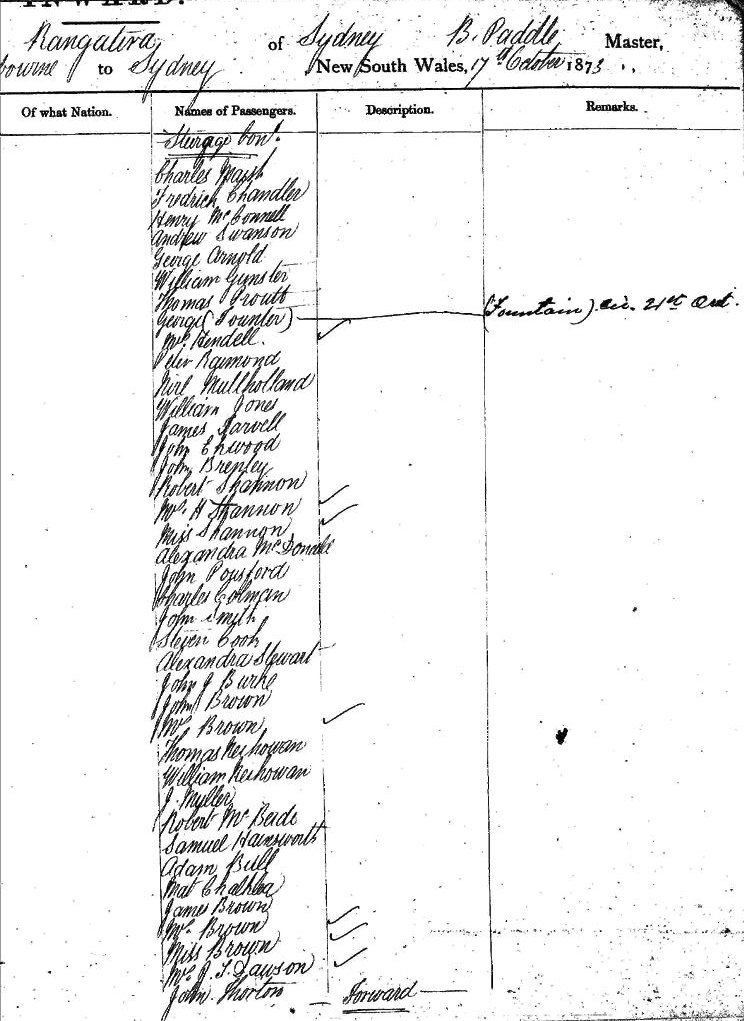 INWARD.
Rangatira of Sydney B. Paddle Master,
bourne to Sydney New South Wales, 17th October 1873
Of what Nation. Names of Passengers. Description. Remarks.
Steerage Cont.
Charles Marsh
Fredrich Chandler
Henry McConnell
Andrew Swanson
George Arnold
William Gunster
Thomas Proutt
George (Founter) (Fountain) 21st Oct.
Mrs Hendell.
Peter Raimond
Mullholland
William Jones
James Farvell
John Enwood
John Brenley
Robert Shannon
Mrs H Shannon
Miss Shannon
Alexandra McDonell
John Pousford
Charles Colman
John Smith
Steven Cook
Alexandra Stewart
John J Burke
John Brown
Mrs Brown
Thomas Keshowan
William Keshowan
J. Myller
Robert McBeide
Samuel Hainsworth
Adam Bull
Mat Chalkea
James Brown
Mrs Brown
Miss Brown
Mrs J. T. Dawson
John Thorton Forward